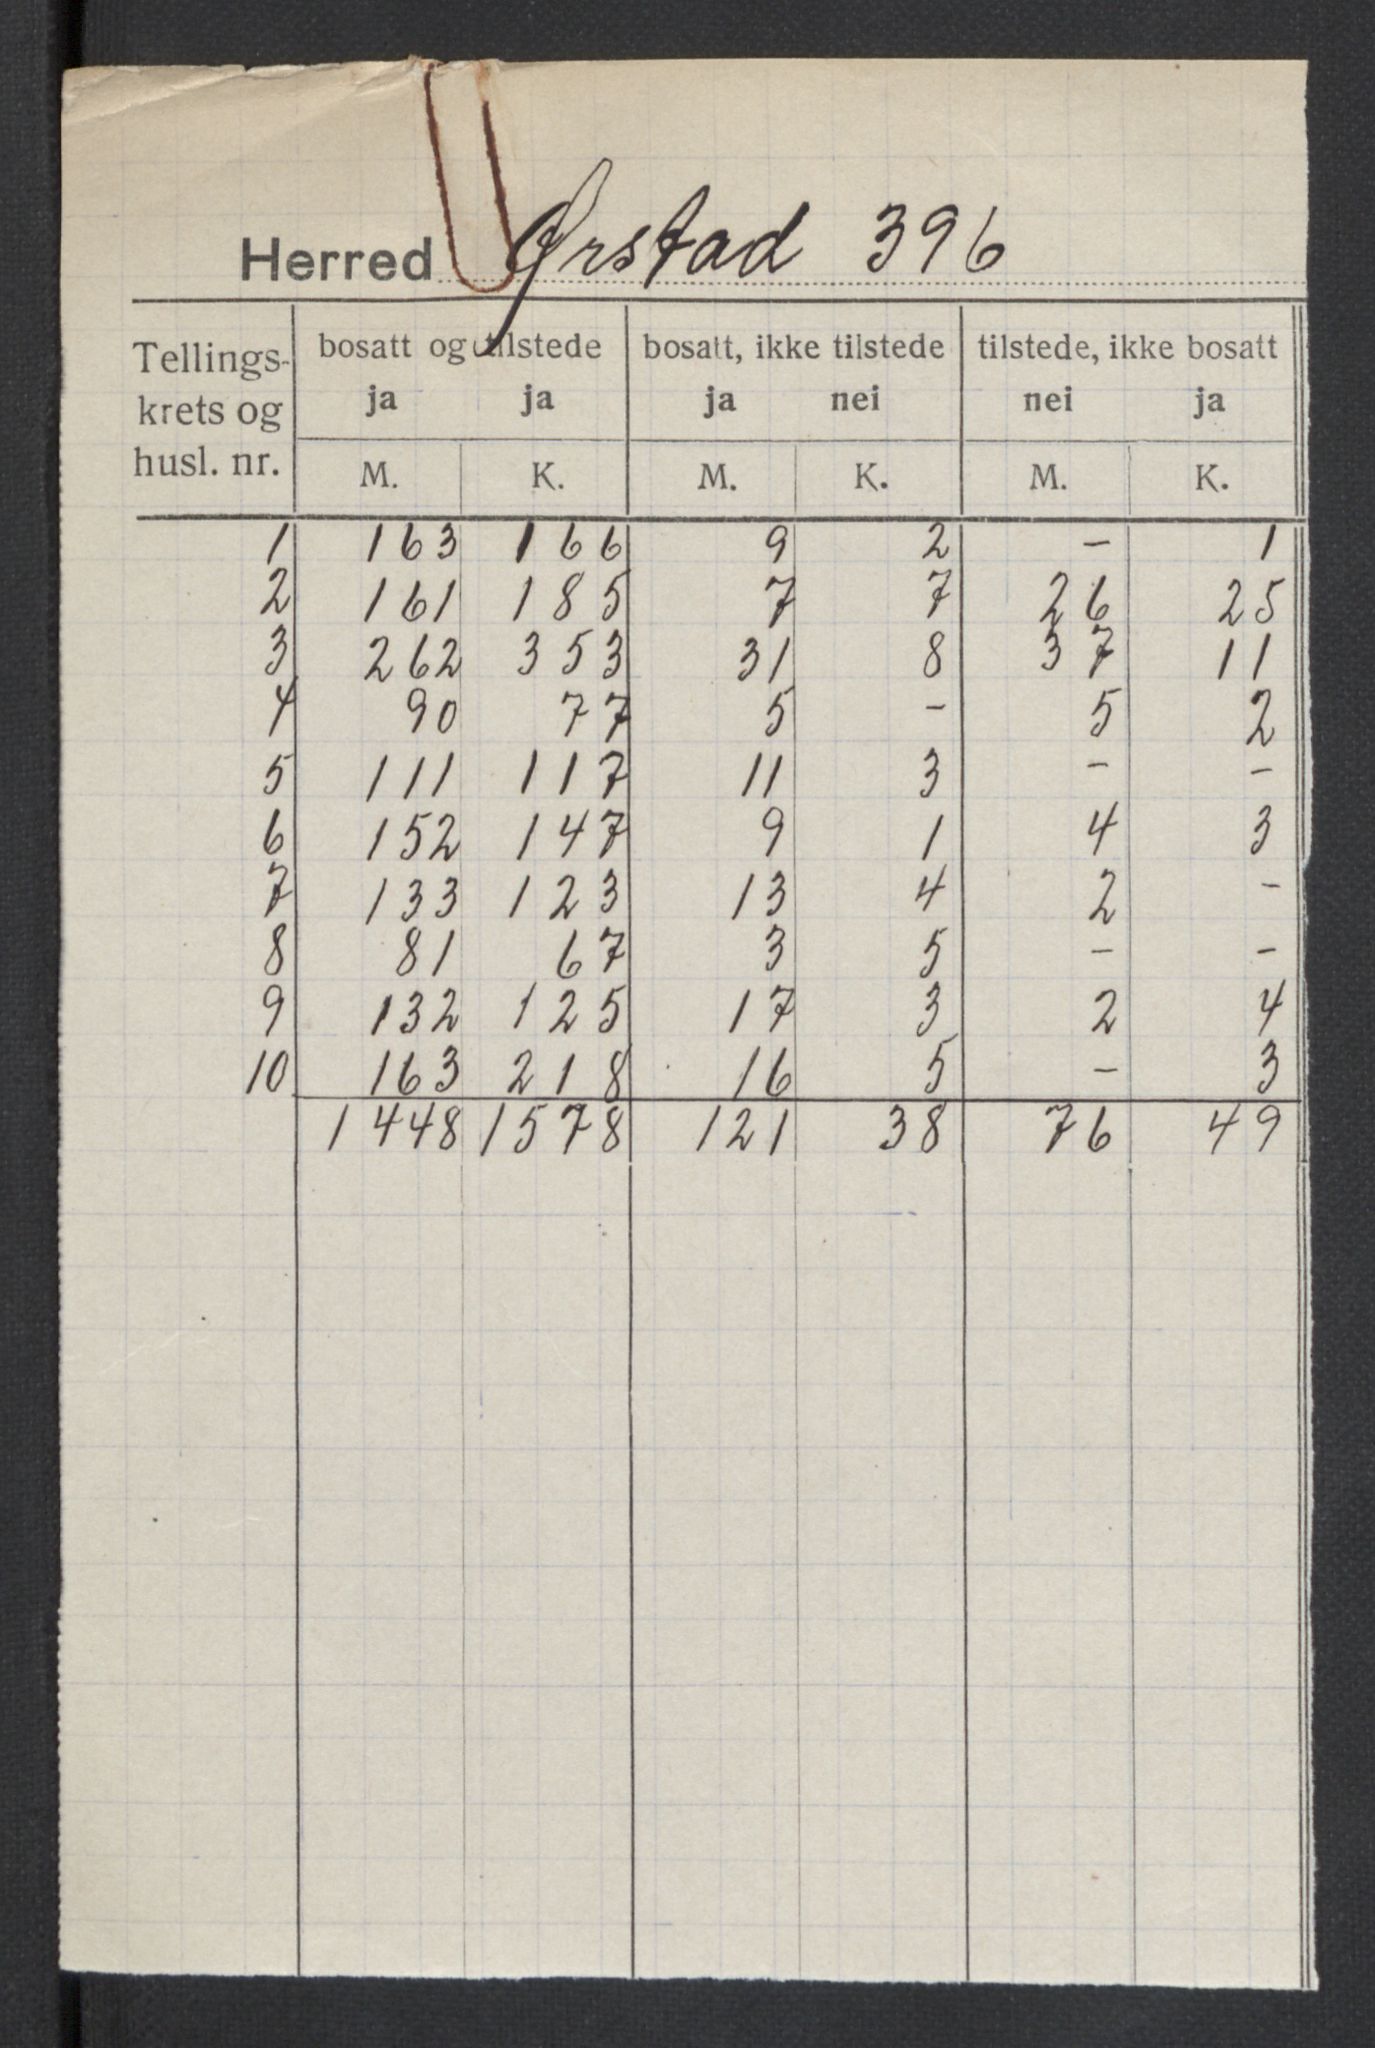 Herred Ørstad 396
Tellings- krets og husl. nr. | bosatt og tilstede | bosatt, ikke tilstede | tilstede, ikke bosatt
ja ja | ja nei | nei ja
M. K. | M. K. | M. K.
1 163 166 9 2 - 1
2 161 185 7 7 26 25
3 262 353 31 8 37 11
4 90 77 5 - 5 2
5 111 117 11 3 - -
6 152 147 9 1 4 3
7 133 123 13 4 2 -
8 81 67 3 5 - -
9 132 125 17 3 2 4
10 163 218 16 5 - 3
1448 1578 121 38 76 49